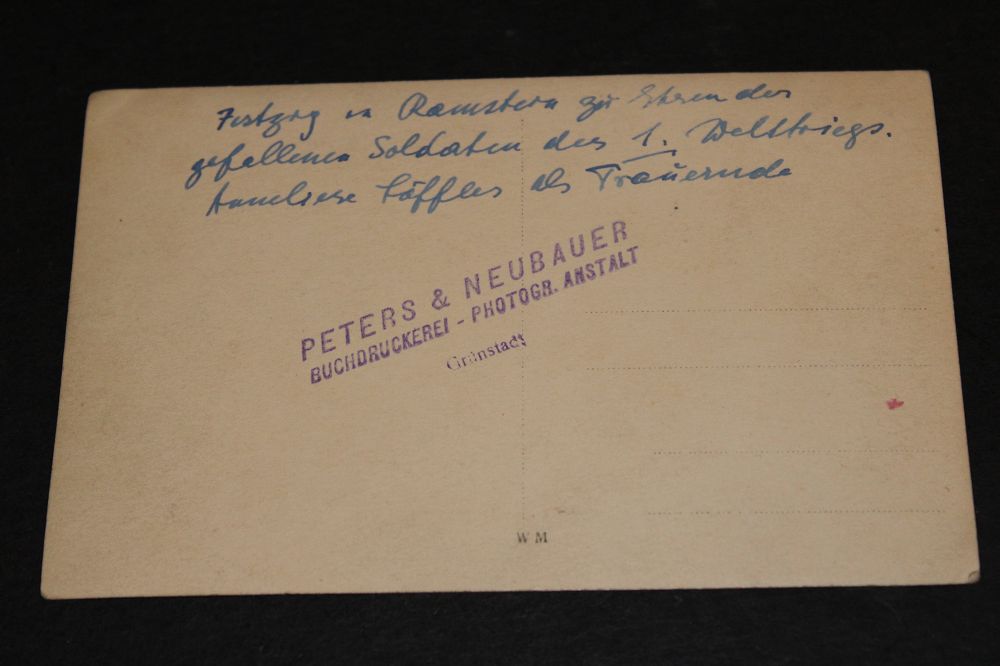 Festzug in Ramstein zu Ehren der
gefallenen Soldaten des 1. Weltkriegs.
Anneliese Löffler als Trauernde
PETERS & NEUBAUER
BUCHDRUCKEREI - PHOTOGR. ANSTALT
Grünstadt
W M